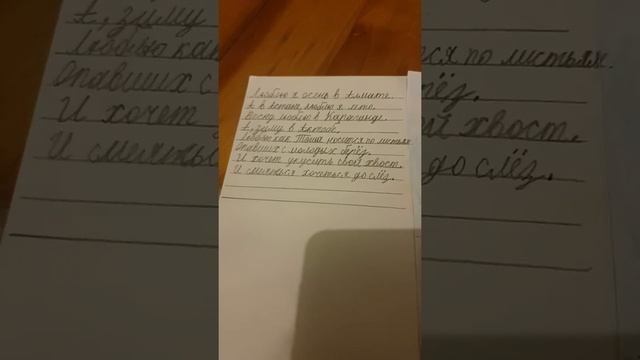 Люблю я осень в Алмате.
А в Астане, люблю я лето.
Весну люблю в Караганде.
А, зиму в Актобе.
Люблю как Таша носится по листьям
Опавших с молодых берёз.
И хочет укусить свой хвост.
И смеяться хочеться до слёз.